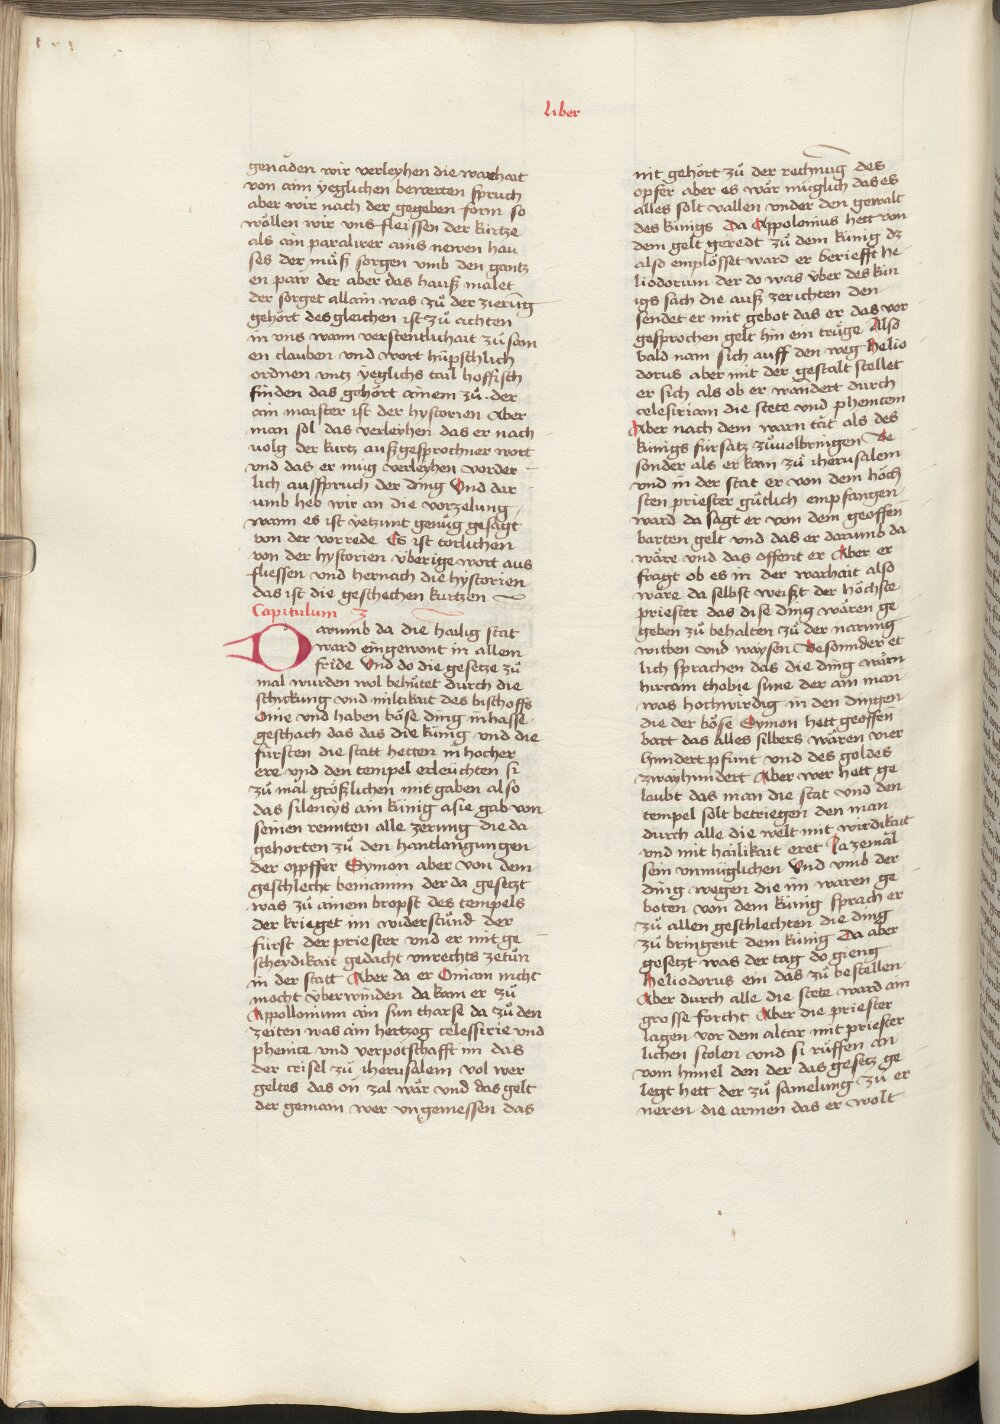 liber
genaden wir verleyhen die warhait
von ain yeglichen bewerten spruch
aber wir nach der gegeben form so
wöllen wir uns fleissen der kürtze
als ain paralirer ains newen hau
ses der müß sorgen umb den gantz
en paw der aber das hauß malet
der sorget allain was zů der zierung
gehört des gleichen ist zů achten
in uns wann verstentlichait zů sam
en clauben und wort hüpschlich
ordnen untz yeglichs tail hoffisch
finden das gehört ainem zů der
ain maister ist der hystorien Aber
man sol das verleyhen das er nach
volg der kurtz außgesprochner wort
und das er müg verleyhen vorder
lich ausspruch der ding Und dar
umb heb wir an die vorzelung
wann es ist yetzunt genüg gesagt
von der vorrede Es ist torlichen
von der hystorien überige wort aus
fliessen und hernach die hystorien
das ist die geschechen kurtzen
Capitulum 3
Darumb da die hailig stat
ward eingewont in allem
fride Und do die gesetze zů
mal wurden wol behütet durch die
schickung und miltikait des bischoffs
Onie und haben böse ding in hasse
geschach das das die künig und die
fürsten die statt hetten in hocher
ere und den tempel erleüchten si
zů mal größlichen mit gaben also
das silencys ain künig asie gab von
seinen rennten alle zerung die da
gehorten zů den hantlangungen
der opffer Symon aber von dem
geschlecht beniamin der da gesetzt
was zů ainem bropst des tempels
der krieget im widerstünd der
fürst der priester und er mit ge
scheydikait gedacht unrechts zetün
in der statt Aber da er Oniam nicht
mocht überwinden da kam er zů
Appollonium ain sun tharse da zů den
zeiten was ain hertzog celessirie und
phenice und verpotschafft im das
der trisel zů iherusalem vol wer
geltes das on zal wär und das gelt
der gemain wer ungemessen das
nit gehört zů der rechnug des
opfer aber es wär müglich das es
alles solt vallen under den gewalt
des künigs Da Appolonius hett von
dem gelt geredt zů dem künig dz
also emplösset ward er beriefft he
liodorum der do was über des kün
igs sach die auß zerichten den
sendet er mit gebot das er das vor
gesprochen gelt hin ein trüge Also
bald nam sich auff den weg helio
dorus aber mit der gestalt stellet
er sich als ob er wandert durch
celesiriam die stete und phenicem
Aber nach dem warn tät als des
künigs fürsatz zůvolbringen Be
sonder als er kam zů iherusalem
und in der stat er von dem höch
sten priester gütlich empfangen
ward da sagt er von dem geoffen
barten gelt und das er darumb da
wäre und das offent er Aber er
fragt ob es in der warhait also
wäre da selbst weißt der höchste
priester das dise ding wären ge
geben zů behalten zů der narung
witben und waysen Besonnder et
lich sprachen das die ding wärn
hircam thobie sune der ain man
was hochwirdig in den dingen
die der böse Symon hett geoffen
bart das alles silbers wären vier
hundert pfunt und des goldes
zwayhundert Aber wer hett ge
laubt das man die stat und den
tempel solt betriegen den man
durch alle die welt mit wirdikait
und mit hailikait eret Ja zemal
sein unmüglichen Und umb der
ding wegen die im waren ge
boten von dem künig sprach er
zů allen geschlechten die ding
zů bringent dem künig Da aber
gesetzt was der tag do gieng
heliodorus ein das zů bestellen
Aber durch alle die stete ward ain
grosse forcht Aber die priester
lagen vor dem altar mit priester
lichen stolen und si rüffen an
vom himel den der das gesetz ge
legt hett der zů samelung zů er
neren die armen das er wolt